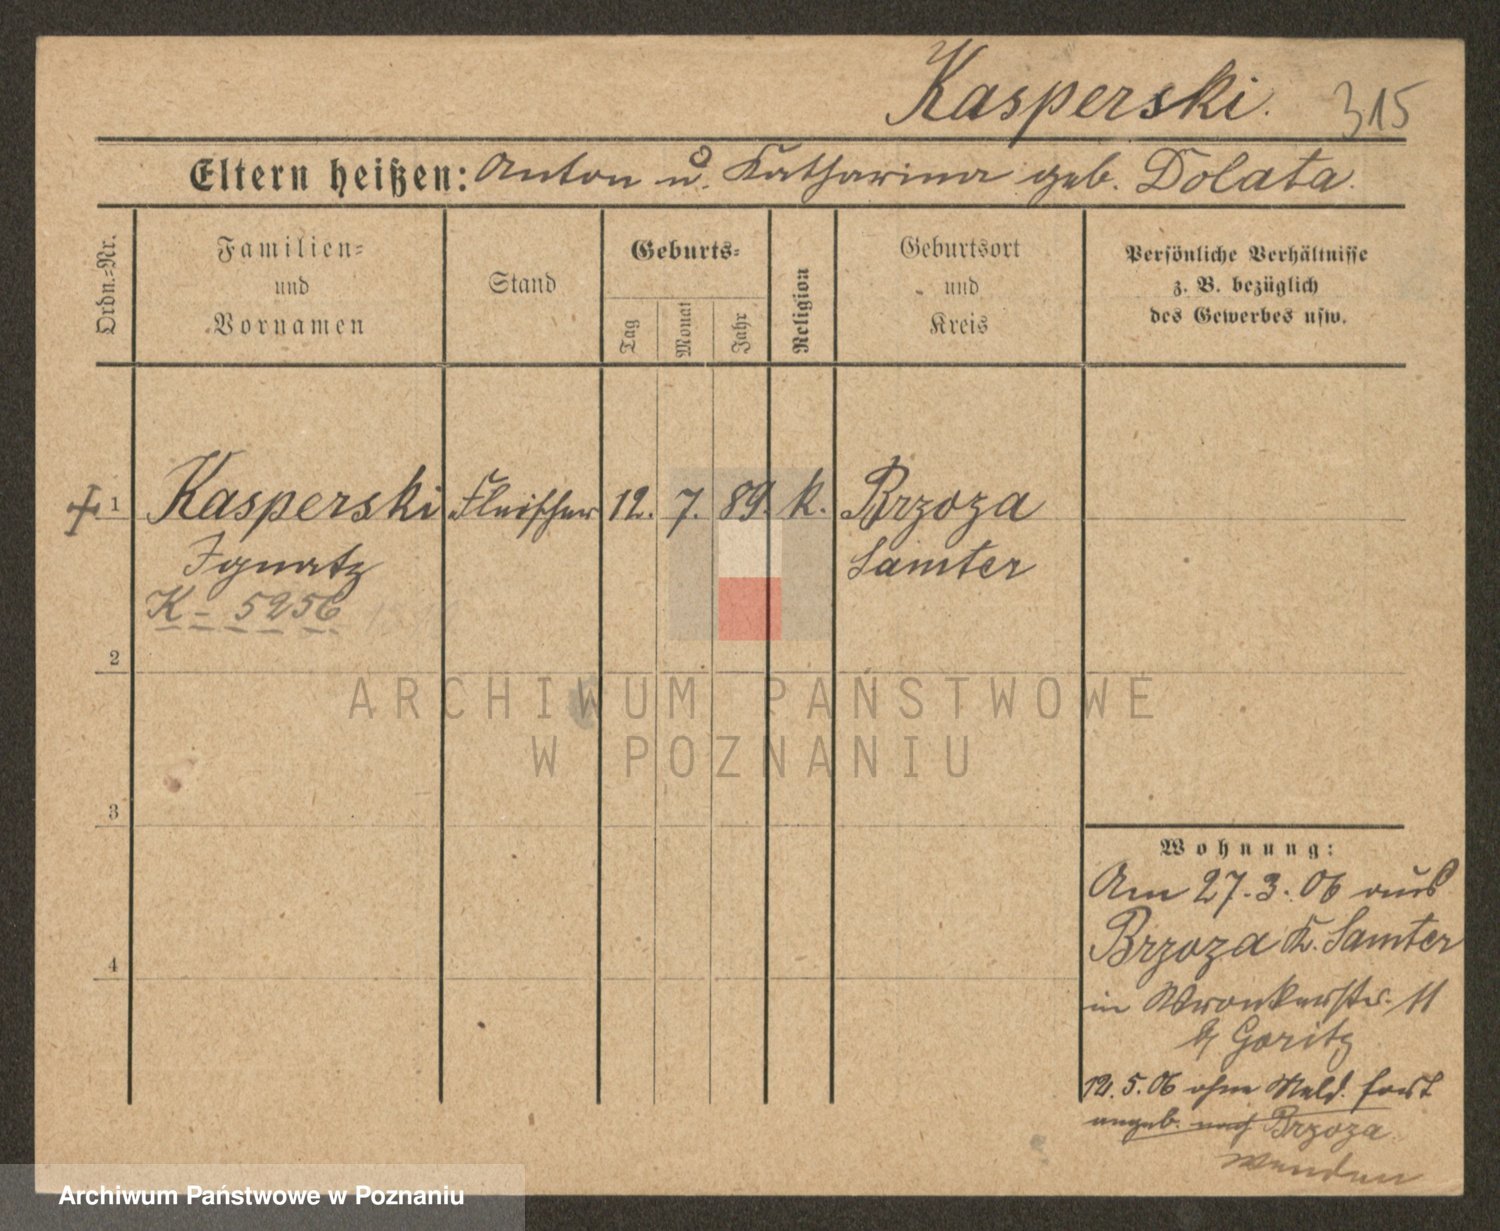 Kasperski. 315
Eltern heißen: Anton u. Katharina geb. Dolata.
Ordn.-Nr.
Familien-
und
Vornamen
Stand
Geburts-
Tag
Monat
Jahr
Religion
Geburtsort
und
Kreis
Persönliche Verhältnisse
z. B. bezüglich
des Gewerbes usw.
1 Kasperski Fleischer 12. 7. 89. k. Brzoza
Ignatz Samter
K - 5256
2
ARCHIWUM PAŃSTWOWE
W POZNANIU
3
Wohnung:
Am 27.3.06 aus
Brzoza K. Samter
4
in Wronkerstr. 11
b/ Goritz
12.5.06 ohne Meld. fort
angeb. nach Brzoza
wenden
Archiwum Państwowe w Poznaniu